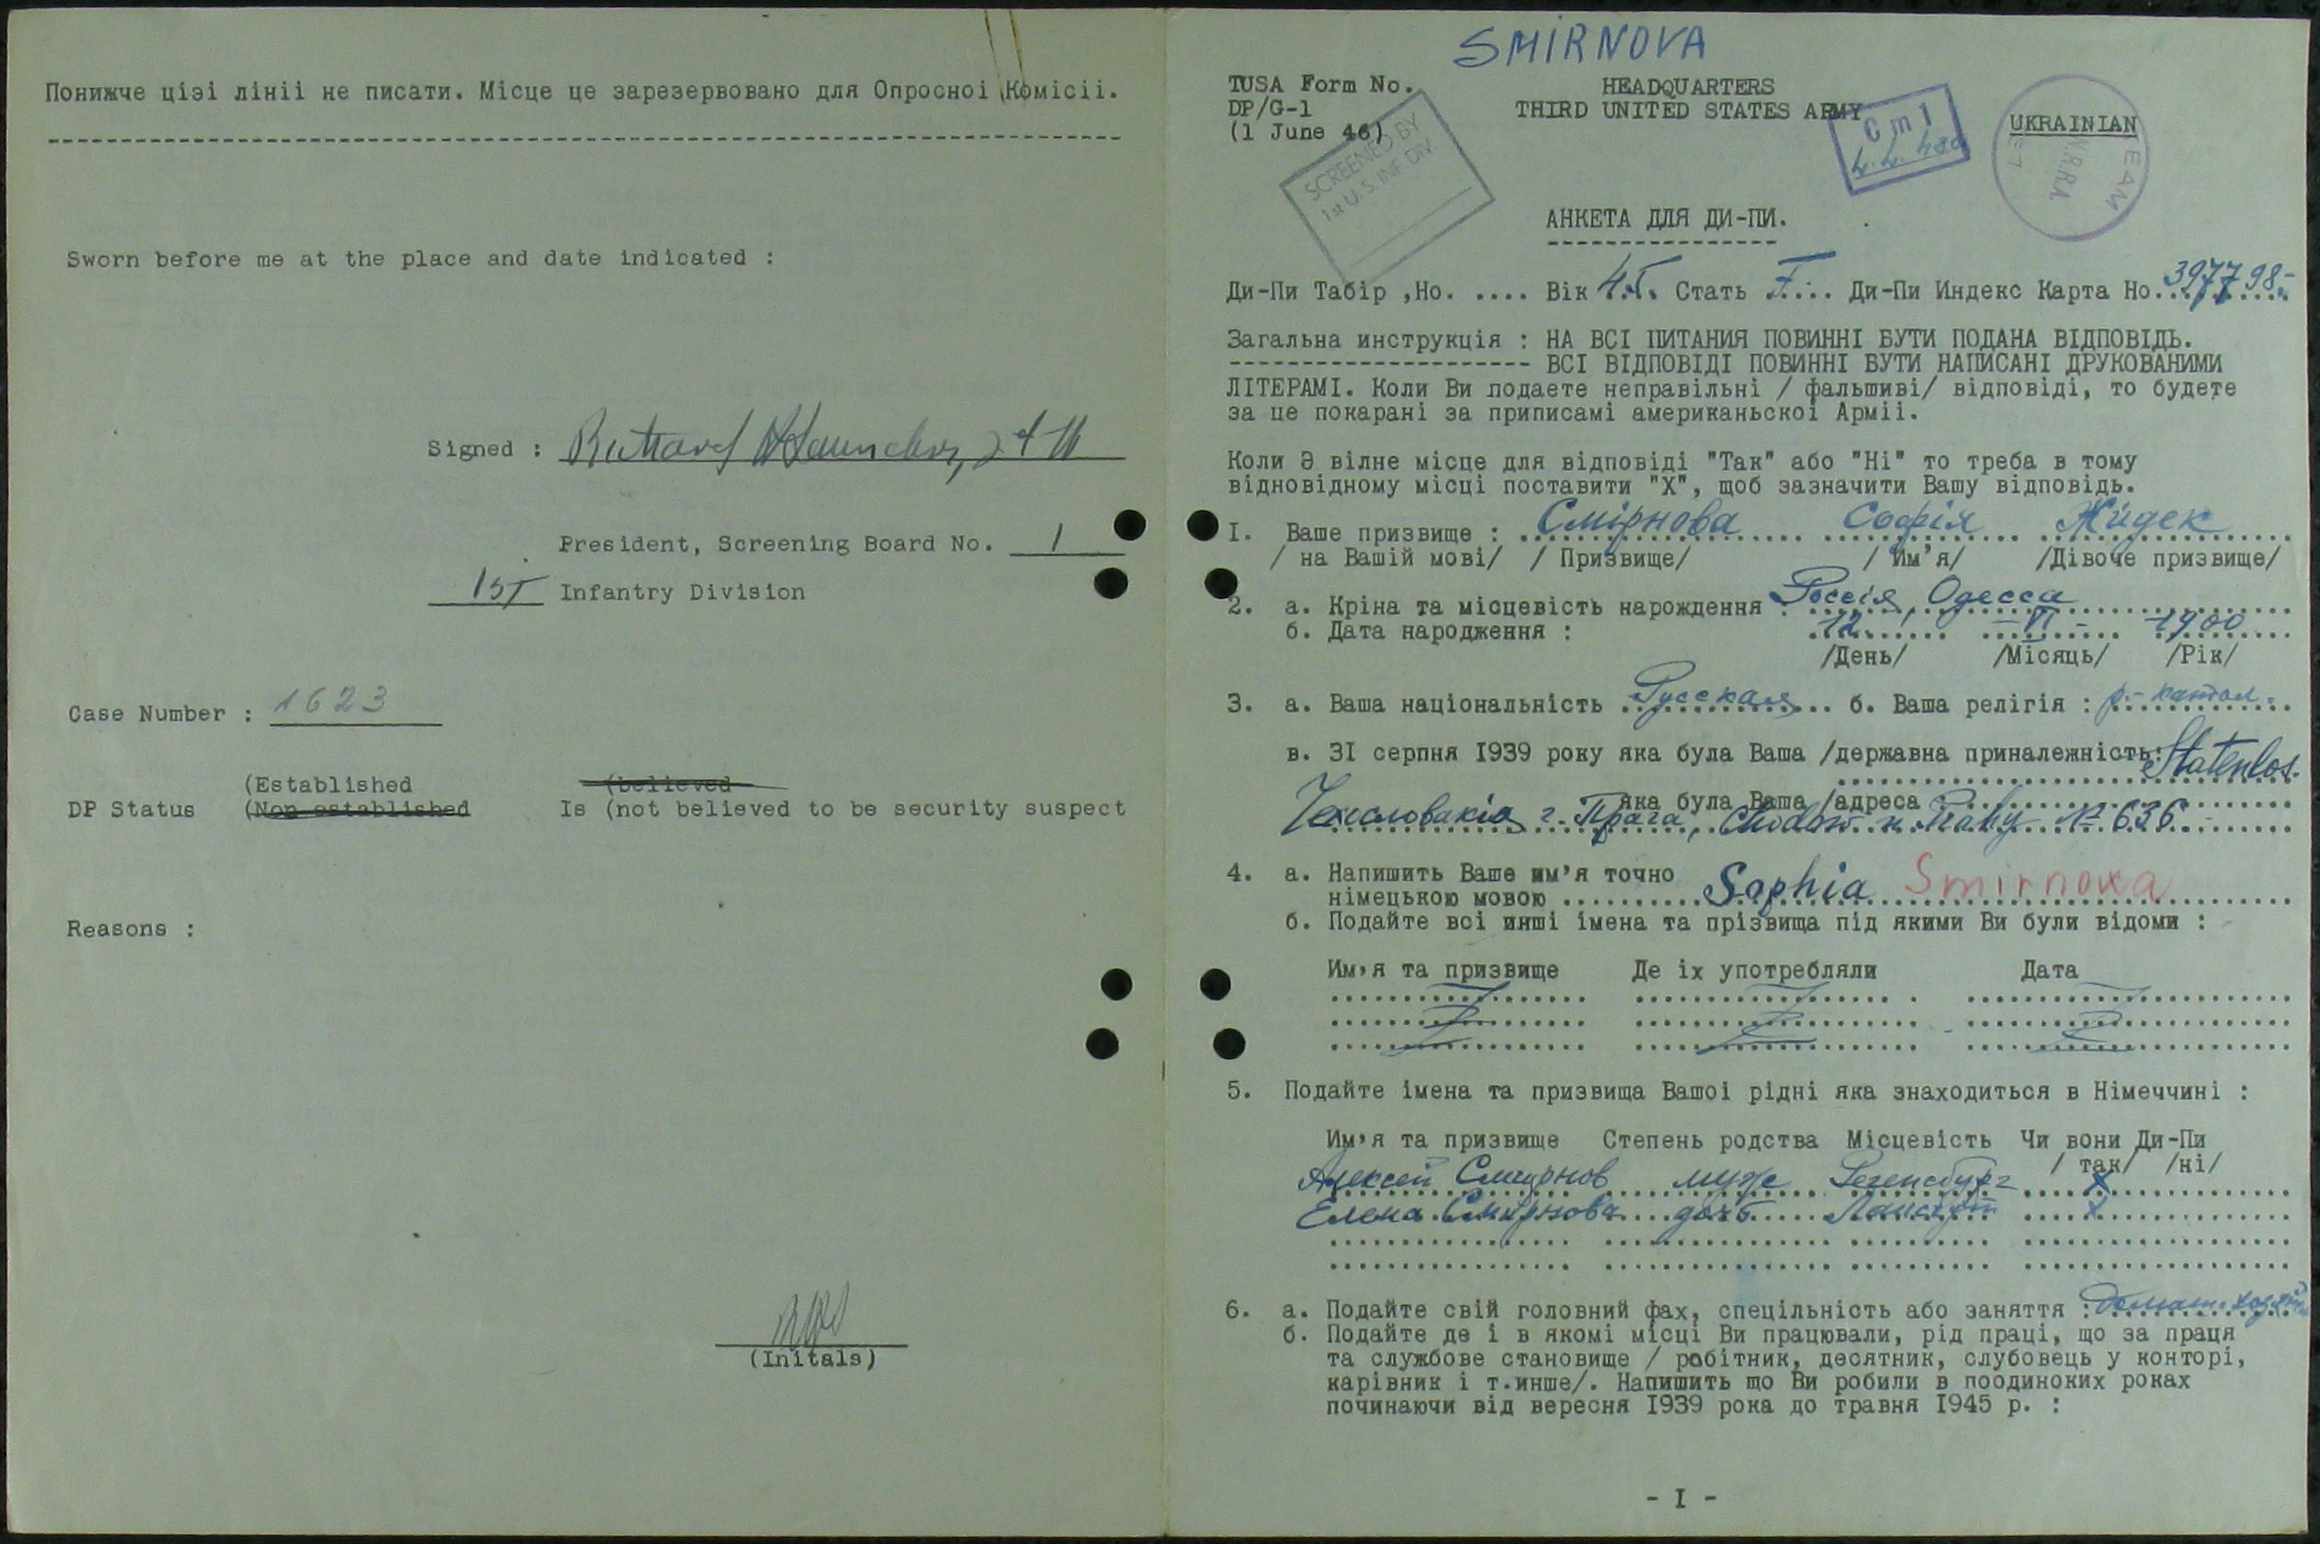 Понижче цізі лініі не писати. Місце це зарезервовано для Опросноі Комісіі.
Sworn before me at the place and date indicated :
Signed :
President, Screening Board No. 1
1ST Infantry Division
Case Number : 1623
(Established (believed
DP Status (Non established Is (not believed to be security suspect
Reasons :
(Initals)
SMIRNOVA
TUSA Form No. HEADQUARTERS
DP/G-1 THIRD UNITED STATES ARMY
(1 June 46)
UKRAINIAN
SCREENED BY
1st U.S. INF. DIV
C m 1
TEAM
U.N.R.R.A
АНКЕТА ДЛЯ ДИ-ПИ.
Ди-Пи Табір ,Но. .... Вік 45. Стать F... Ди-Пи Индекс Карта Но. 397798
Загальна инструкція : НА ВСІ ПИТАНИЯ ПОВИННІ БУТИ ПОДАНА ВІДПОВІДЬ.
ВСІ ВІДПОВІДІ ПОВИННІ БУТИ НАПИСАНІ ДРУКОВАНИМИ
ЛІТЕРАМІ. Коли Ви подаете неправільні / фальшиві/ відповіді, то будете
за це покарані за приписамі американьскоі Арміі.
Коли Э вілне місце для відповіді "Так" або "Ні" то треба в тому
відновідному місці поставити "X", щоб зазначити Вашу відповідь.
I. Ваше призвище : Смірнова Софія Жидек
/ на Вашій мові/ / Призвище/ / Им'я/ /Дівоче призвище/
2. а. Кріна та місцевість нарождення : Россія, Одесса
б. Дата народження : 12 - VI - 1900
/День/ /Місяць/ /Рік/
3. а. Ваша національність Русская б. Ваша релігія : р.-катол.
в. 3I серпня I939 року яка була Ваша /державна приналежність: Statenlos.
яка була Ваша /адреса :
Чехословакія г. Прага, Chodow u Prahy № 636
4. а. Напишить Ваше им'я точно
німецькою мовою Sophia Smirnova
б. Подайте всі инші імена та прізвища під якими Ви були відоми :
Им,я та призвище Де іх употребляли Дата
5. Подайте імена та призвища Вашоі рідні яка знаходиться в Німеччині :
Им,я та призвище Степень родства Місцевість Чи вони Ди-Пи
/ так/ /ні/
Алексей Смирнов муж Регенсбург X
Елена Смирнова дочь Ландсгут X
6. а. Подайте свій головний фах, спецільність або заняття :
б. Подайте де і в якомі місці Ви працювали, рід праці, що за праця
та службове становище / робітник, десятник, слубовець у конторі,
карівник і т.инше/. Напишить що Ви робили в поодиноких роках
починаючи від вересня I939 рока до травня I945 р. :
- I -